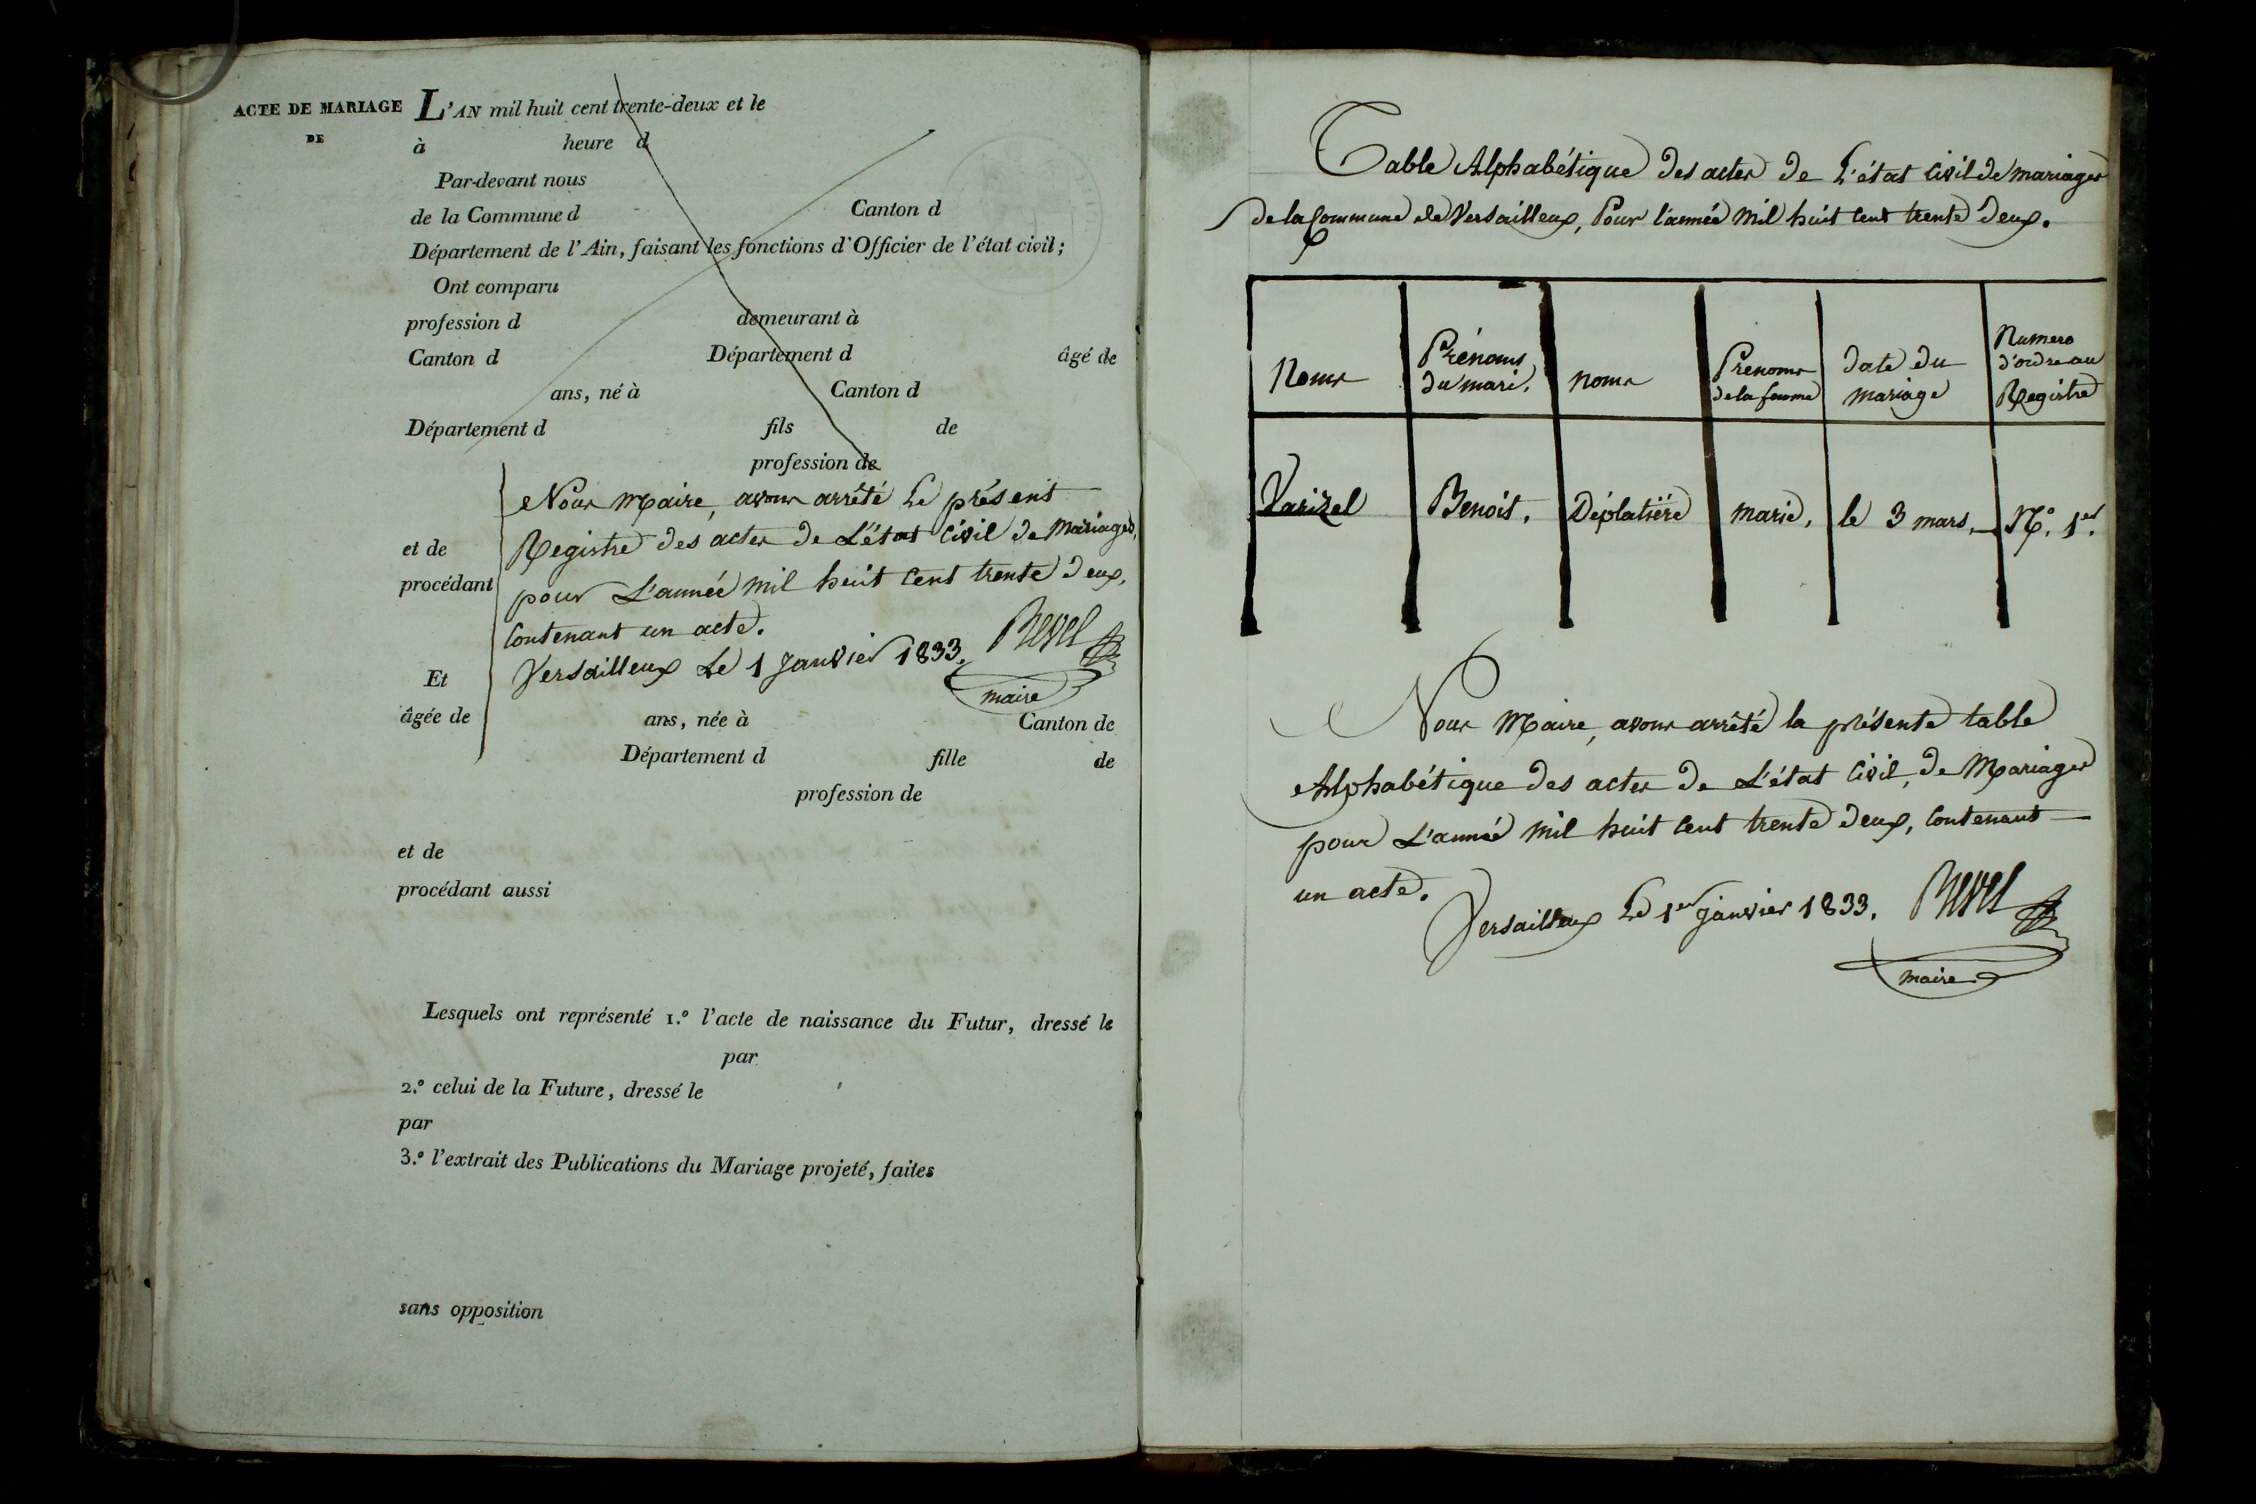 ACTE DE MARIAGE
DE
L'AN mil huit cent trente-deux et le
à heure d
Par-devant nous
de la Commune d Canton d
Département de l'Ain, faisant les fonctions d'Officier de l'état civil;
Ont comparu
profession d demeurant à
Canton d Département d âgé de
ans, né à Canton d
Département d fils de
profession de
Nous Maire, avons arrêté Le présent
Registre des actes de L'état Civil de Mariages,
pour L'année mil huit Cent trente deux,
Contenant un acte.
Versailleux Le 1 Janvier 1833. Revel
maire
et de
procédant
Et
âgée de ans, née à Canton de
Département d fille de
profession de
et de
procédant aussi
Lesquels ont représenté 1.º l'acte de naissance du Futur, dressé le
par
2.º celui de la Future, dressé le
par
3.º l'extrait des Publications du Mariage projeté, faites
sans opposition
Table Alphabétique des actes de L'état Civil de mariages
de la Commune de Versailleux, Pour l'année Mil huit Cent trente deux.
Noms Prénoms du mari. noms Prénoms de la femme date du mariage Numero d'ordre au Registre
Varizel Benoit. Déplatière marie, le 3 mars, Nº. 1er.
Nous Maire, avons arrêté la présente table
Alphabétique des actes de L'état Civil, de Mariages
pour L'année Mil huit Cent trente deux, Contenant
un acte.
Versailleux Le 1er janvier 1833. Revel
maire